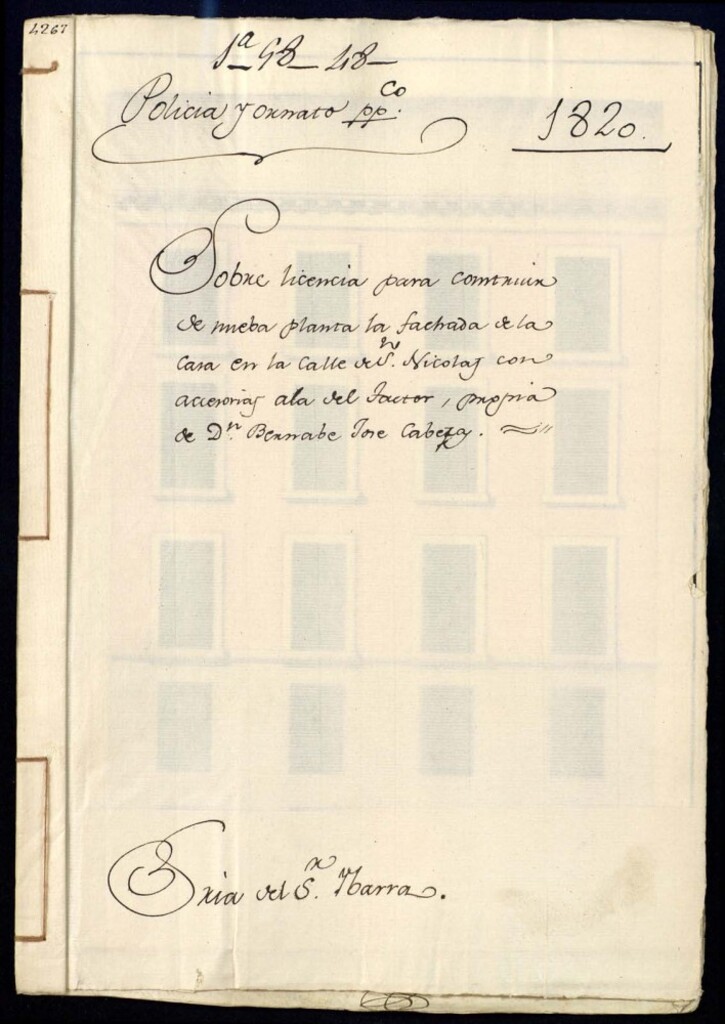 4267
1ª 48-48-
Policia y ornato pp.co
1820.
Sobre licencia para construir
de nueba planta la fachada de la
Casa en la Calle de S.n Nicolas con
accesorias ala del Factor, propia
de D.n Bernabe Jose Cabeza.
Sria del S.r Ybarra.